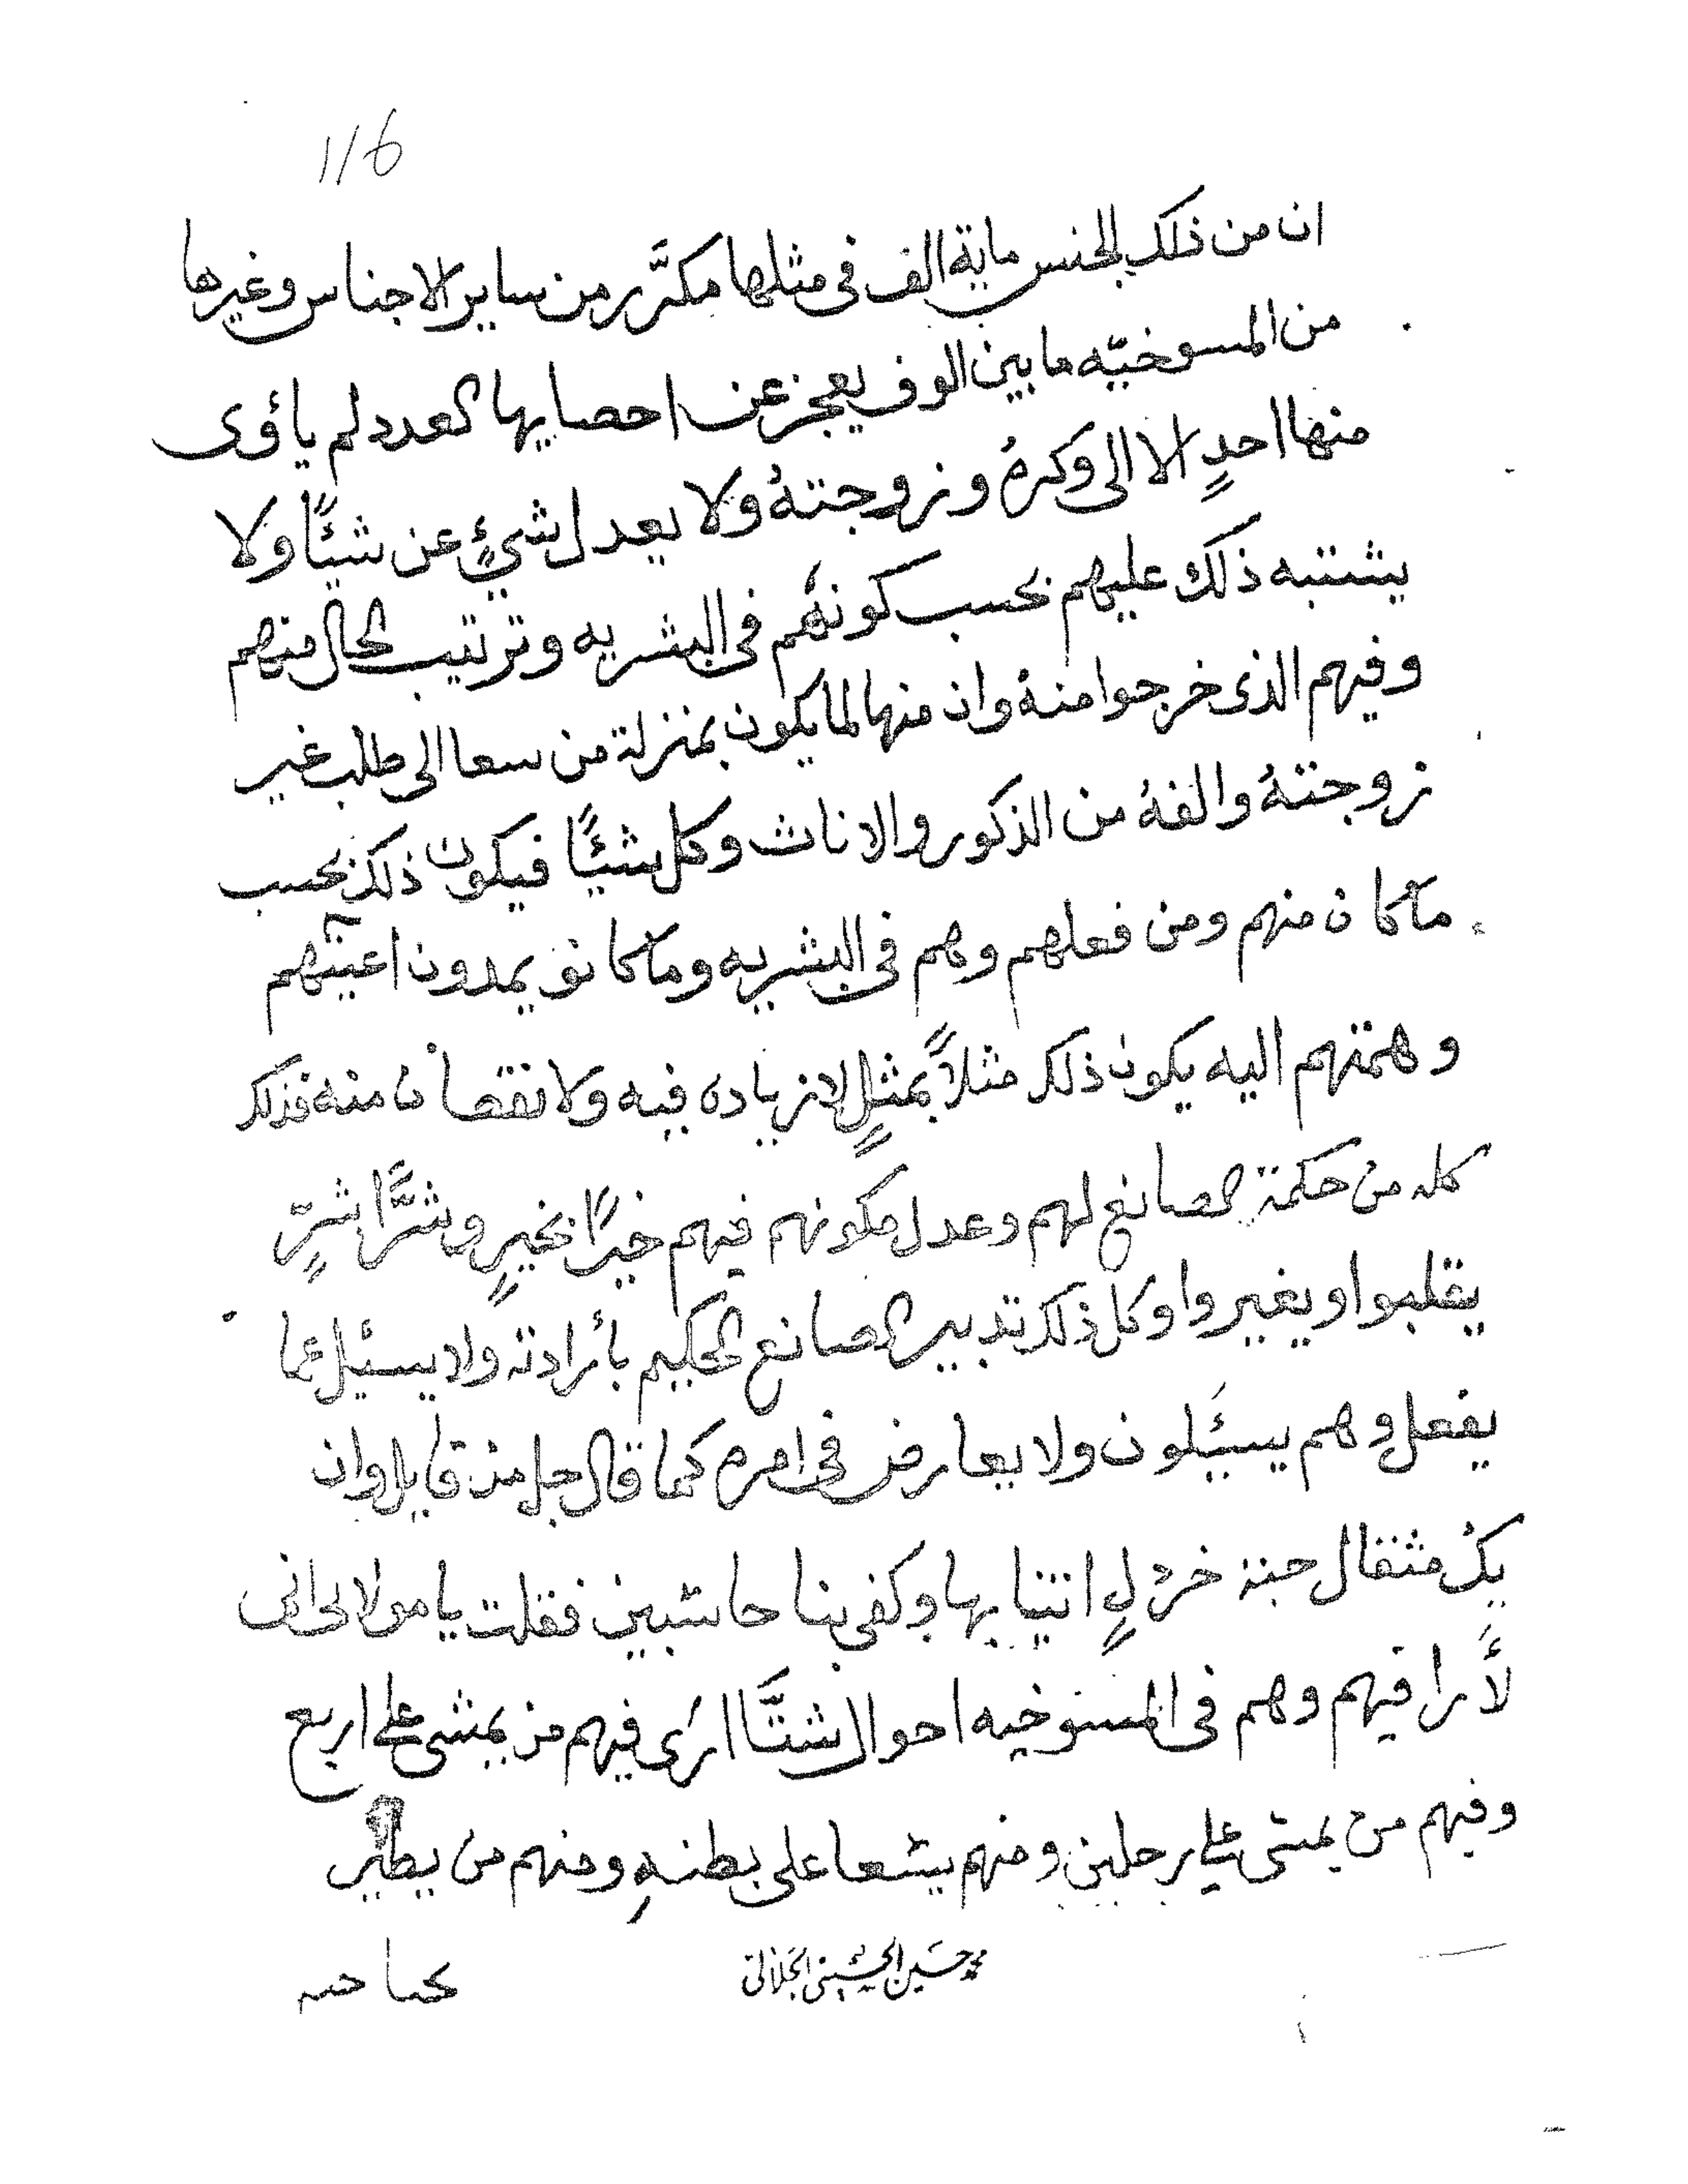 116
ان من ذلك الجنس ماية الف في مثلها مكرَّر من ساير الاجناس وغيرها
من المسوخيّه ما بين الوف يعجز عن احصايها العدد لم ياؤى
منها احدٍ الا الى وكرهُ وزوجتهُ ولا يعدل شئٍ عن شيئًا ولا
يشتبه ذلك عليهم بحسب كونهم فى البشريه وترتيب الحال منهم
وفيهم الذى خرجوا منهُ وان منها لما يكون بمنزلة من سعا الى طلب غير
زوجتهُ والفهُ من الذكور والاناث وكل شيئًا فيكون ذلك بحسب
ما كان منهم ومن فعلهم وهم فى البشريه وما كانو يمدون اعينهم
وهمتهم اليه يكون ذلك مثلاً بمثلٍ لا زياده فيه ولا نقصان منه فذلك
كله من حكمة الصانع لهم وعدل مكونهم فيهم خيرًا بخيرٍ وشرًّا بشرٍّ
يقلبوا او يغيروا وكل ذلك تدبير الصانع الحكيم بأرادته ولا يسئيل عما
يفعل وهم يسئيلون ولا يعارض فى امره كما قال جل من قايل وان
يكُ مثقال حبة خردلٍ اتينا بها وكفى بنا حاسبين فقلت يا مولاى انى
لأرا فيهم وهم فى المسوخيه احوال شتَّا ارى فيهم من يمشى على اربع
وفيهم من يمشى على رجلين ومنهم يسعا على بطنهِ ومنهم من يطير
محمد حسين الحسيني الجلالي
بجناحيه